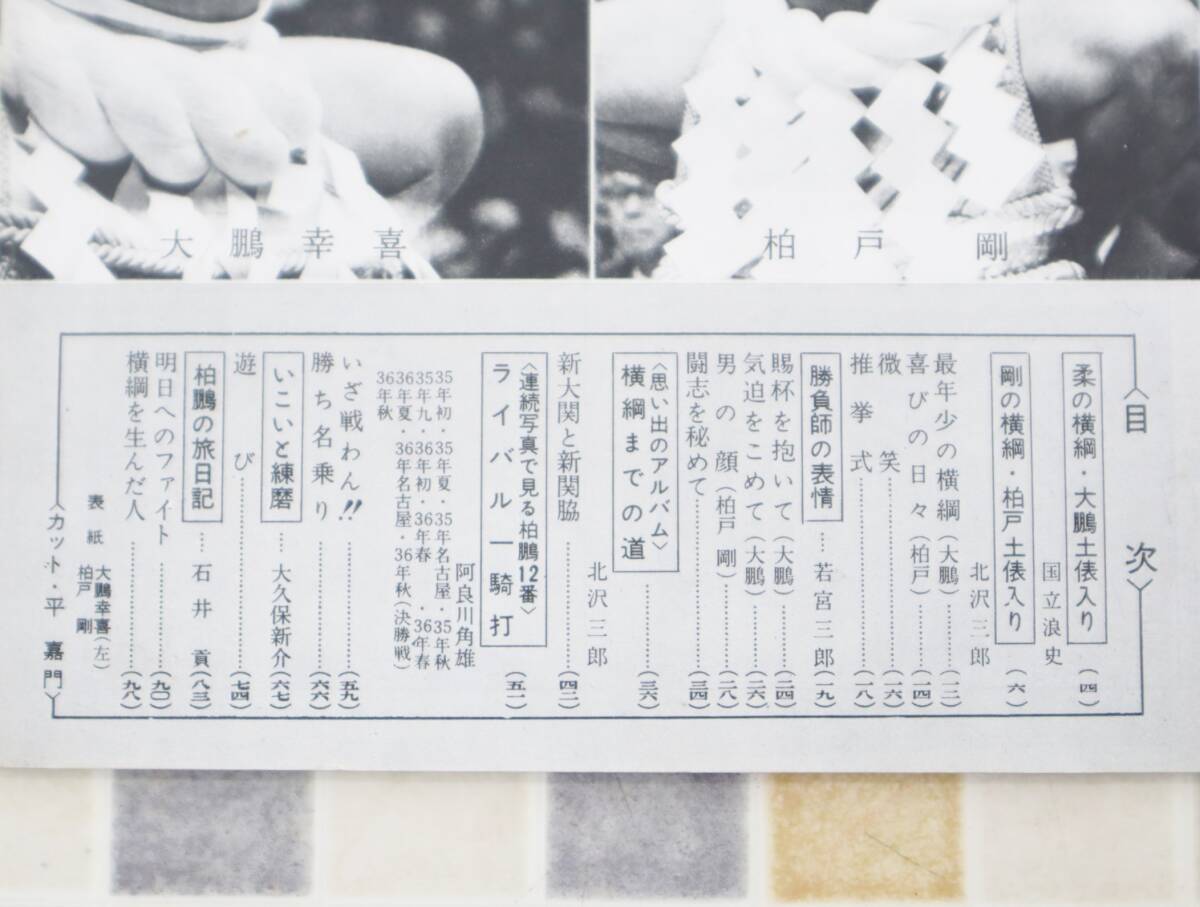 大鵬幸喜
柏戸 剛
〈目 次〉
柔の横綱・大鵬土俵入り……(四)
国立浪史
剛の横綱・柏戸土俵入り……(六)
北沢三郎
最年少の横綱(大鵬)……(一二)
喜びの日々(柏戸)……(一四)
微笑……(一六)
推挙式……(一八)
勝負師の表情……若宮三郎(一九)
賜杯を抱いて(大鵬)……(二四)
気迫をこめて(大鵬)……(二六)
男の顔(柏戸 剛)……(二八)
闘志を秘めて……(三四)
〈思い出のアルバム〉
横綱までの道……(三六)
北沢三郎
新大関と新関脇……(四二)
〈連続写真で見る柏鵬12番〉
ライバル一騎打……(五一)
阿良川角雄
35年初・35年夏・35年名古屋・35年秋
35年九・36年初・36年春・36年春
36年夏・36年名古屋・36年秋(決勝戦)
36年秋
いざ戦わん!!……(五九)
勝ち名乗り……(六六)
いこいと練磨……大久保新介(六七)
遊び……(七四)
柏鵬の旅日記……石井 貢(八三)
明日へのファイト……(九〇)
横綱を生んだ人……(九八)
表紙 大鵬幸喜(左)
柏戸 剛
〈カット・平 嘉門〉